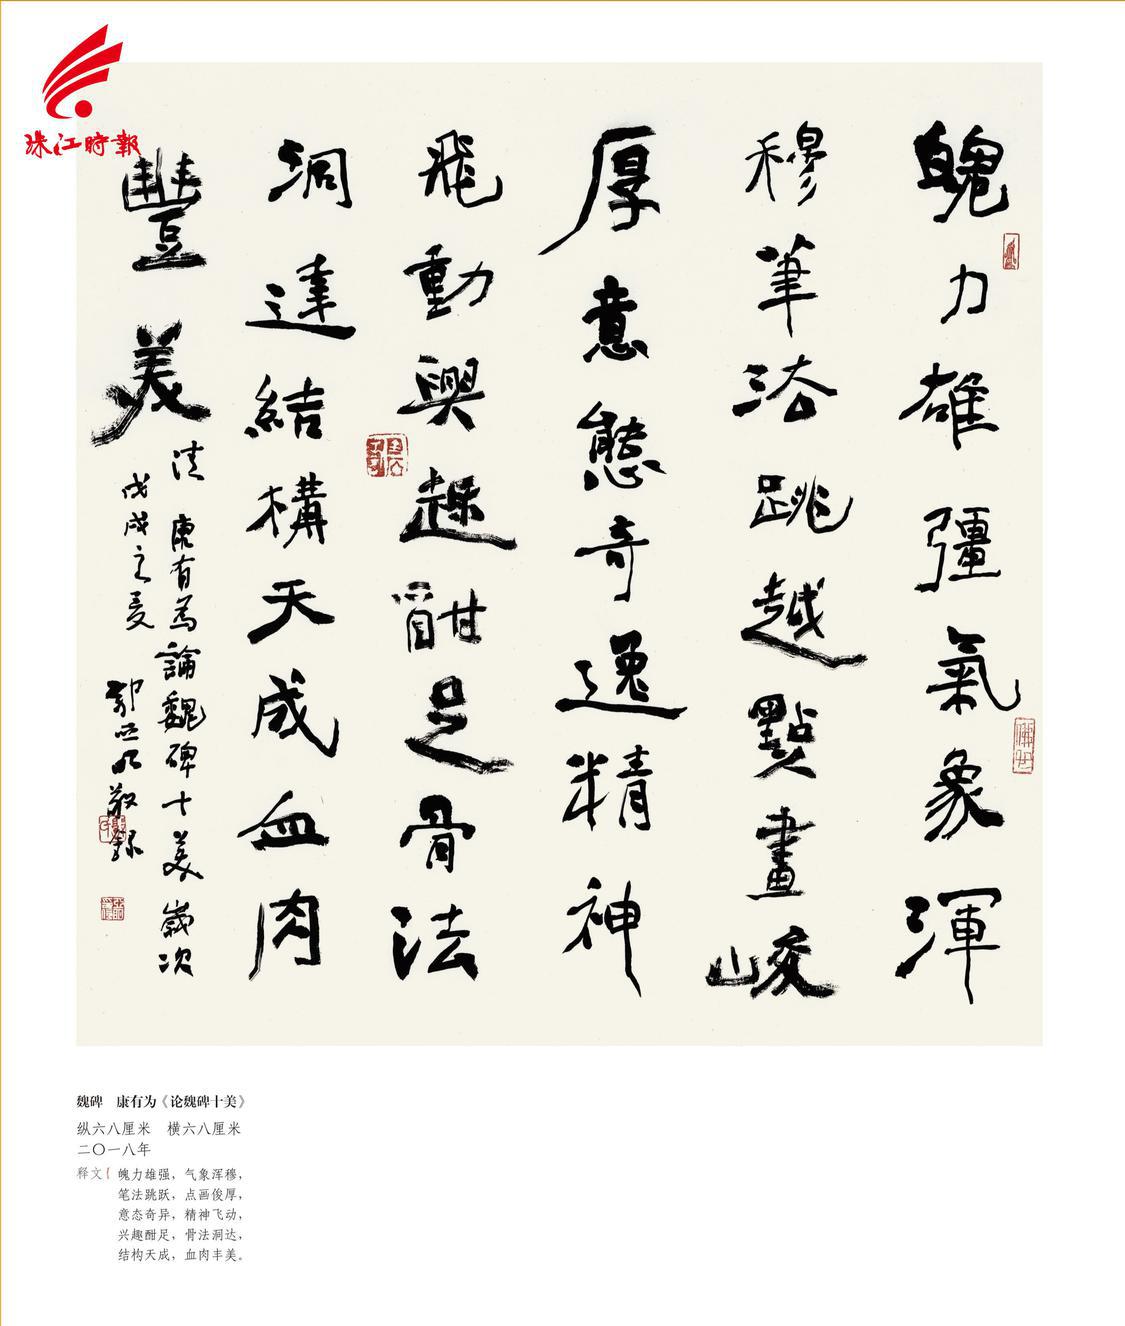 珠江時報
魄力雄彊氣象渾
穆筆法跳越點畫峻
厚意態奇逸精神
飛動興趣酣足骨法
洞達結構天成血肉
豐美
清 康有為論魏碑十美 歲次
戊戌之夏
敬錄
魏碑 康有为《论魏碑十美》
纵六八厘米 横六八厘米
二〇一八年
释文 魄力雄强，气象浑穆，
笔法跳跃，点画俊厚，
意态奇异，精神飞动，
兴趣酣足，骨法洞达，
结构天成，血肉丰美。